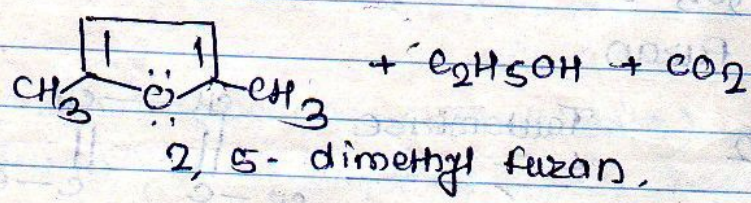 CH3 O CH3 + C2H5OH + CO2
2, 5- dimethyl furan.